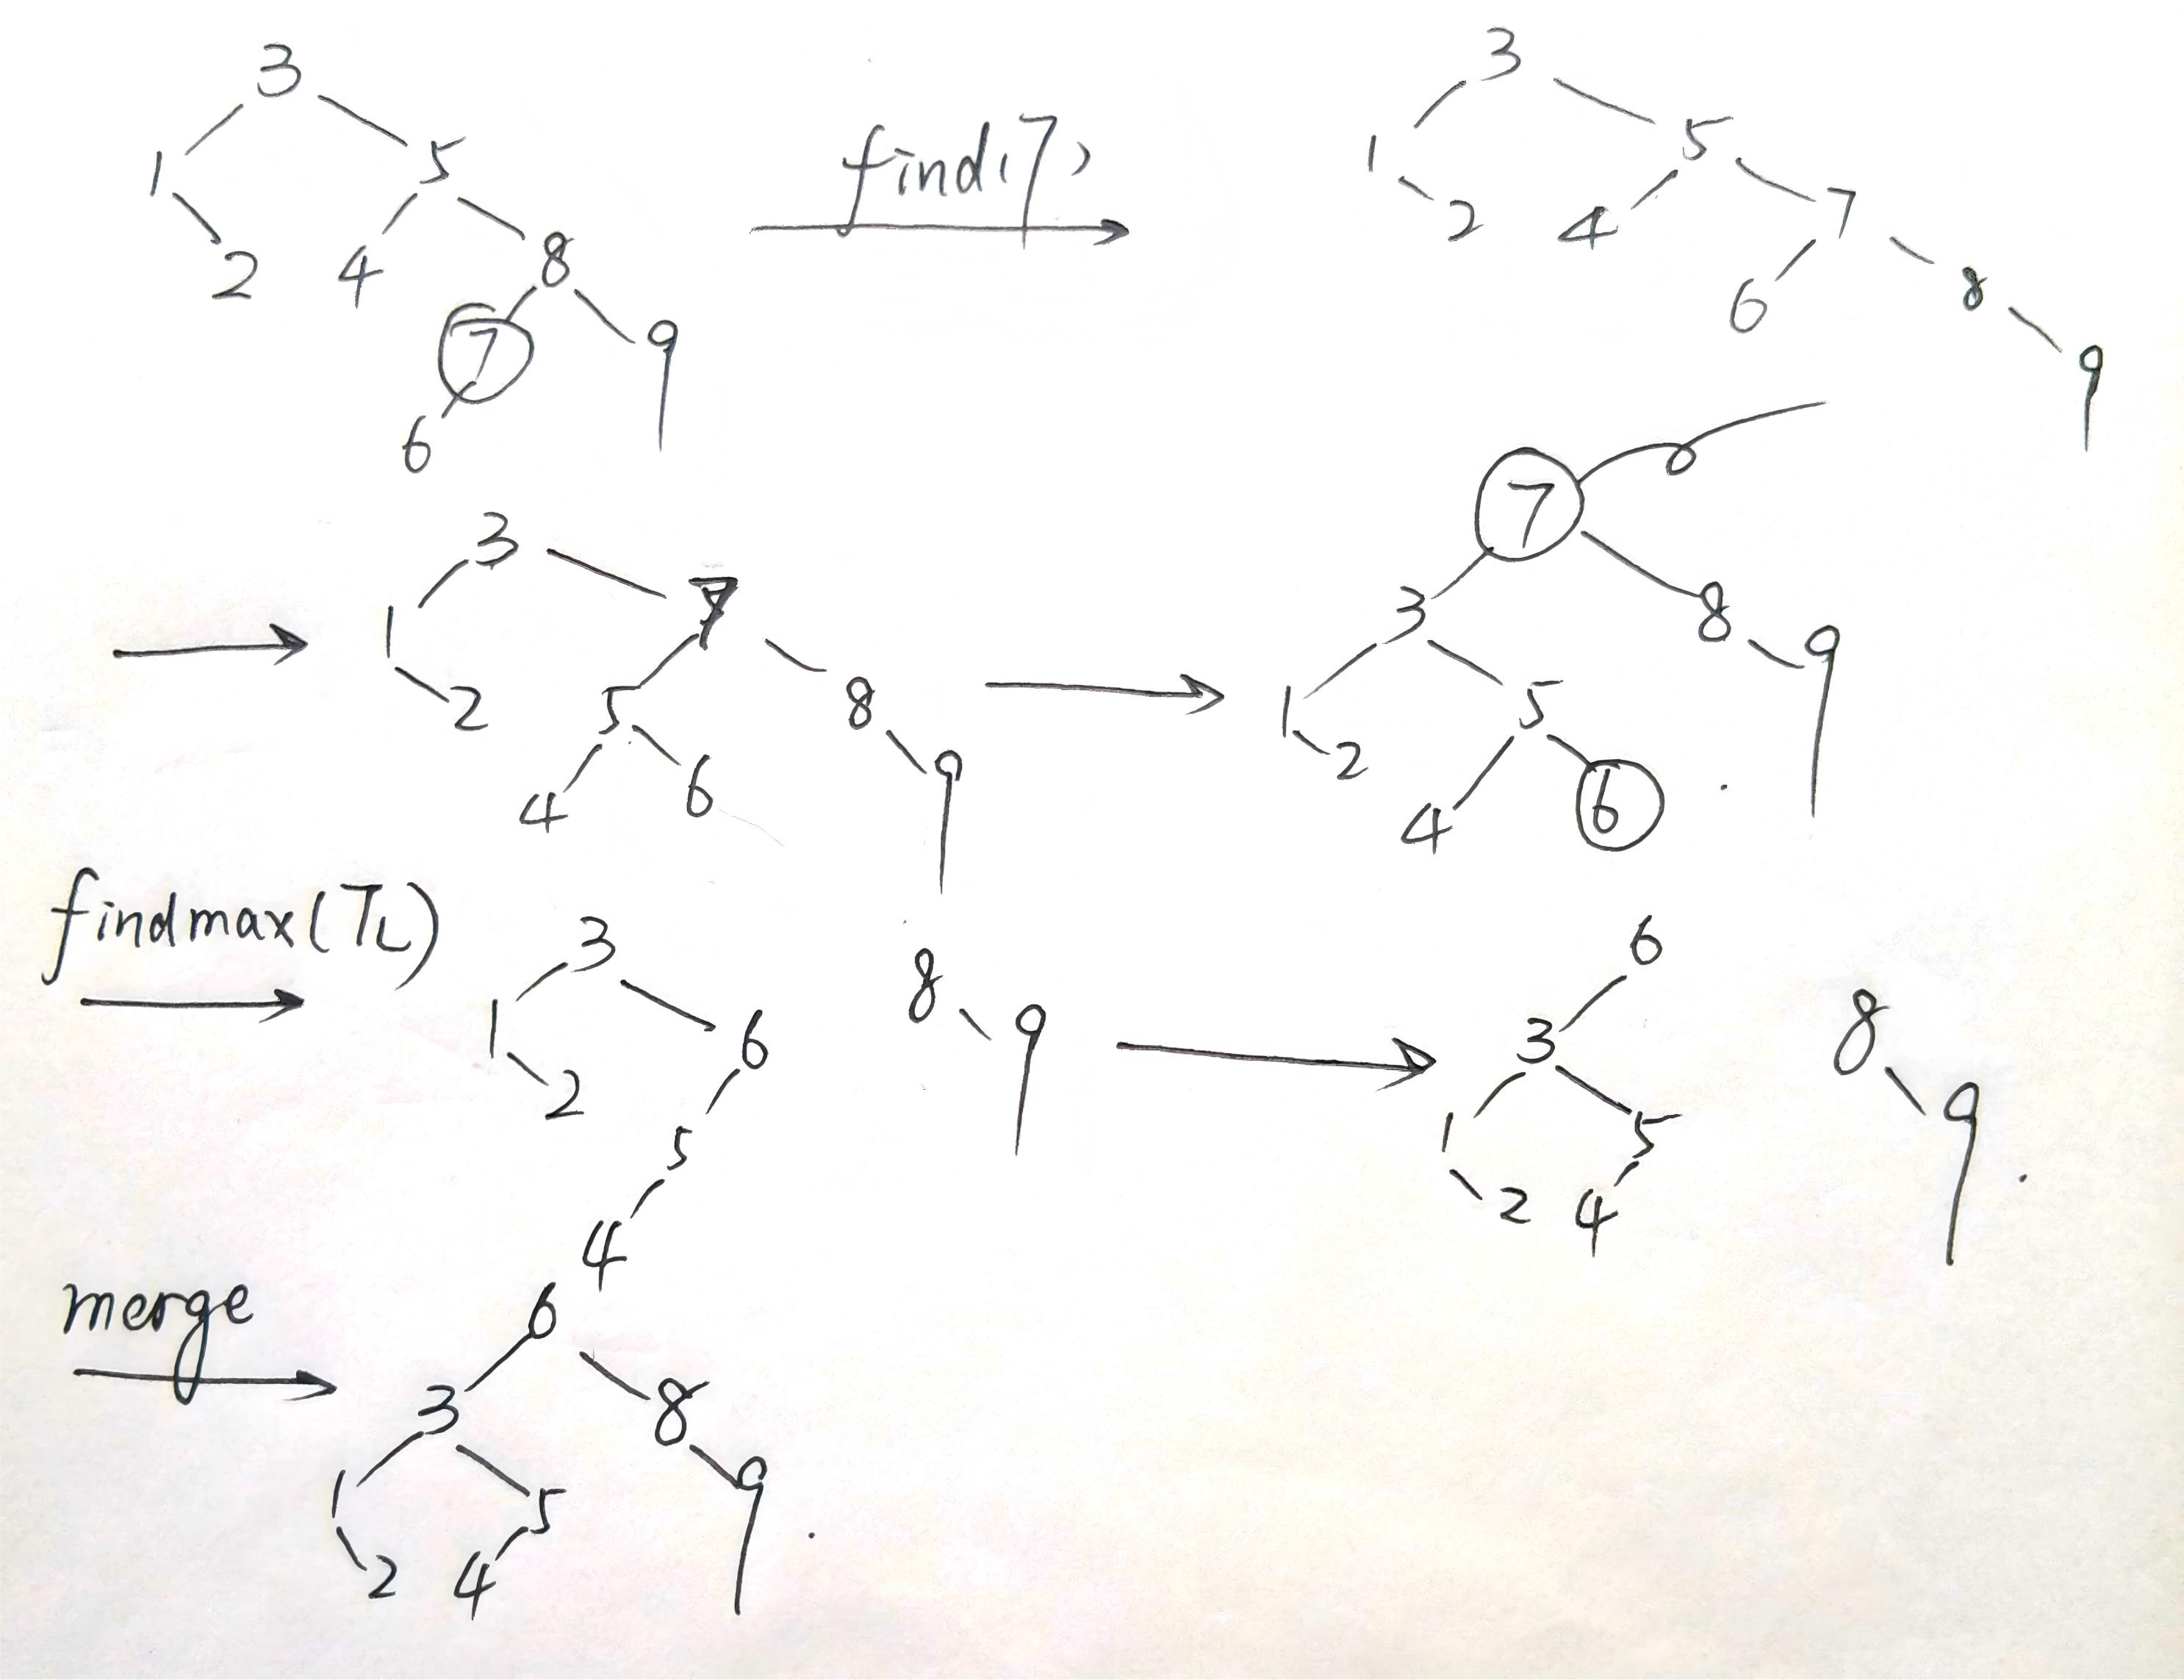 3
3
1
5
find(7)
1
5
2
4
8
2
4
7
7
9
6
8
6
9
3
7
1
7
3
8
9
2
5
8
1
5
4
6
9
2
4
6
findmax(TL)
3
8
6
1
6
9
3
8
2
5
1
5
9
4
2
4
merge
6
3
8
1
5
9
2
4